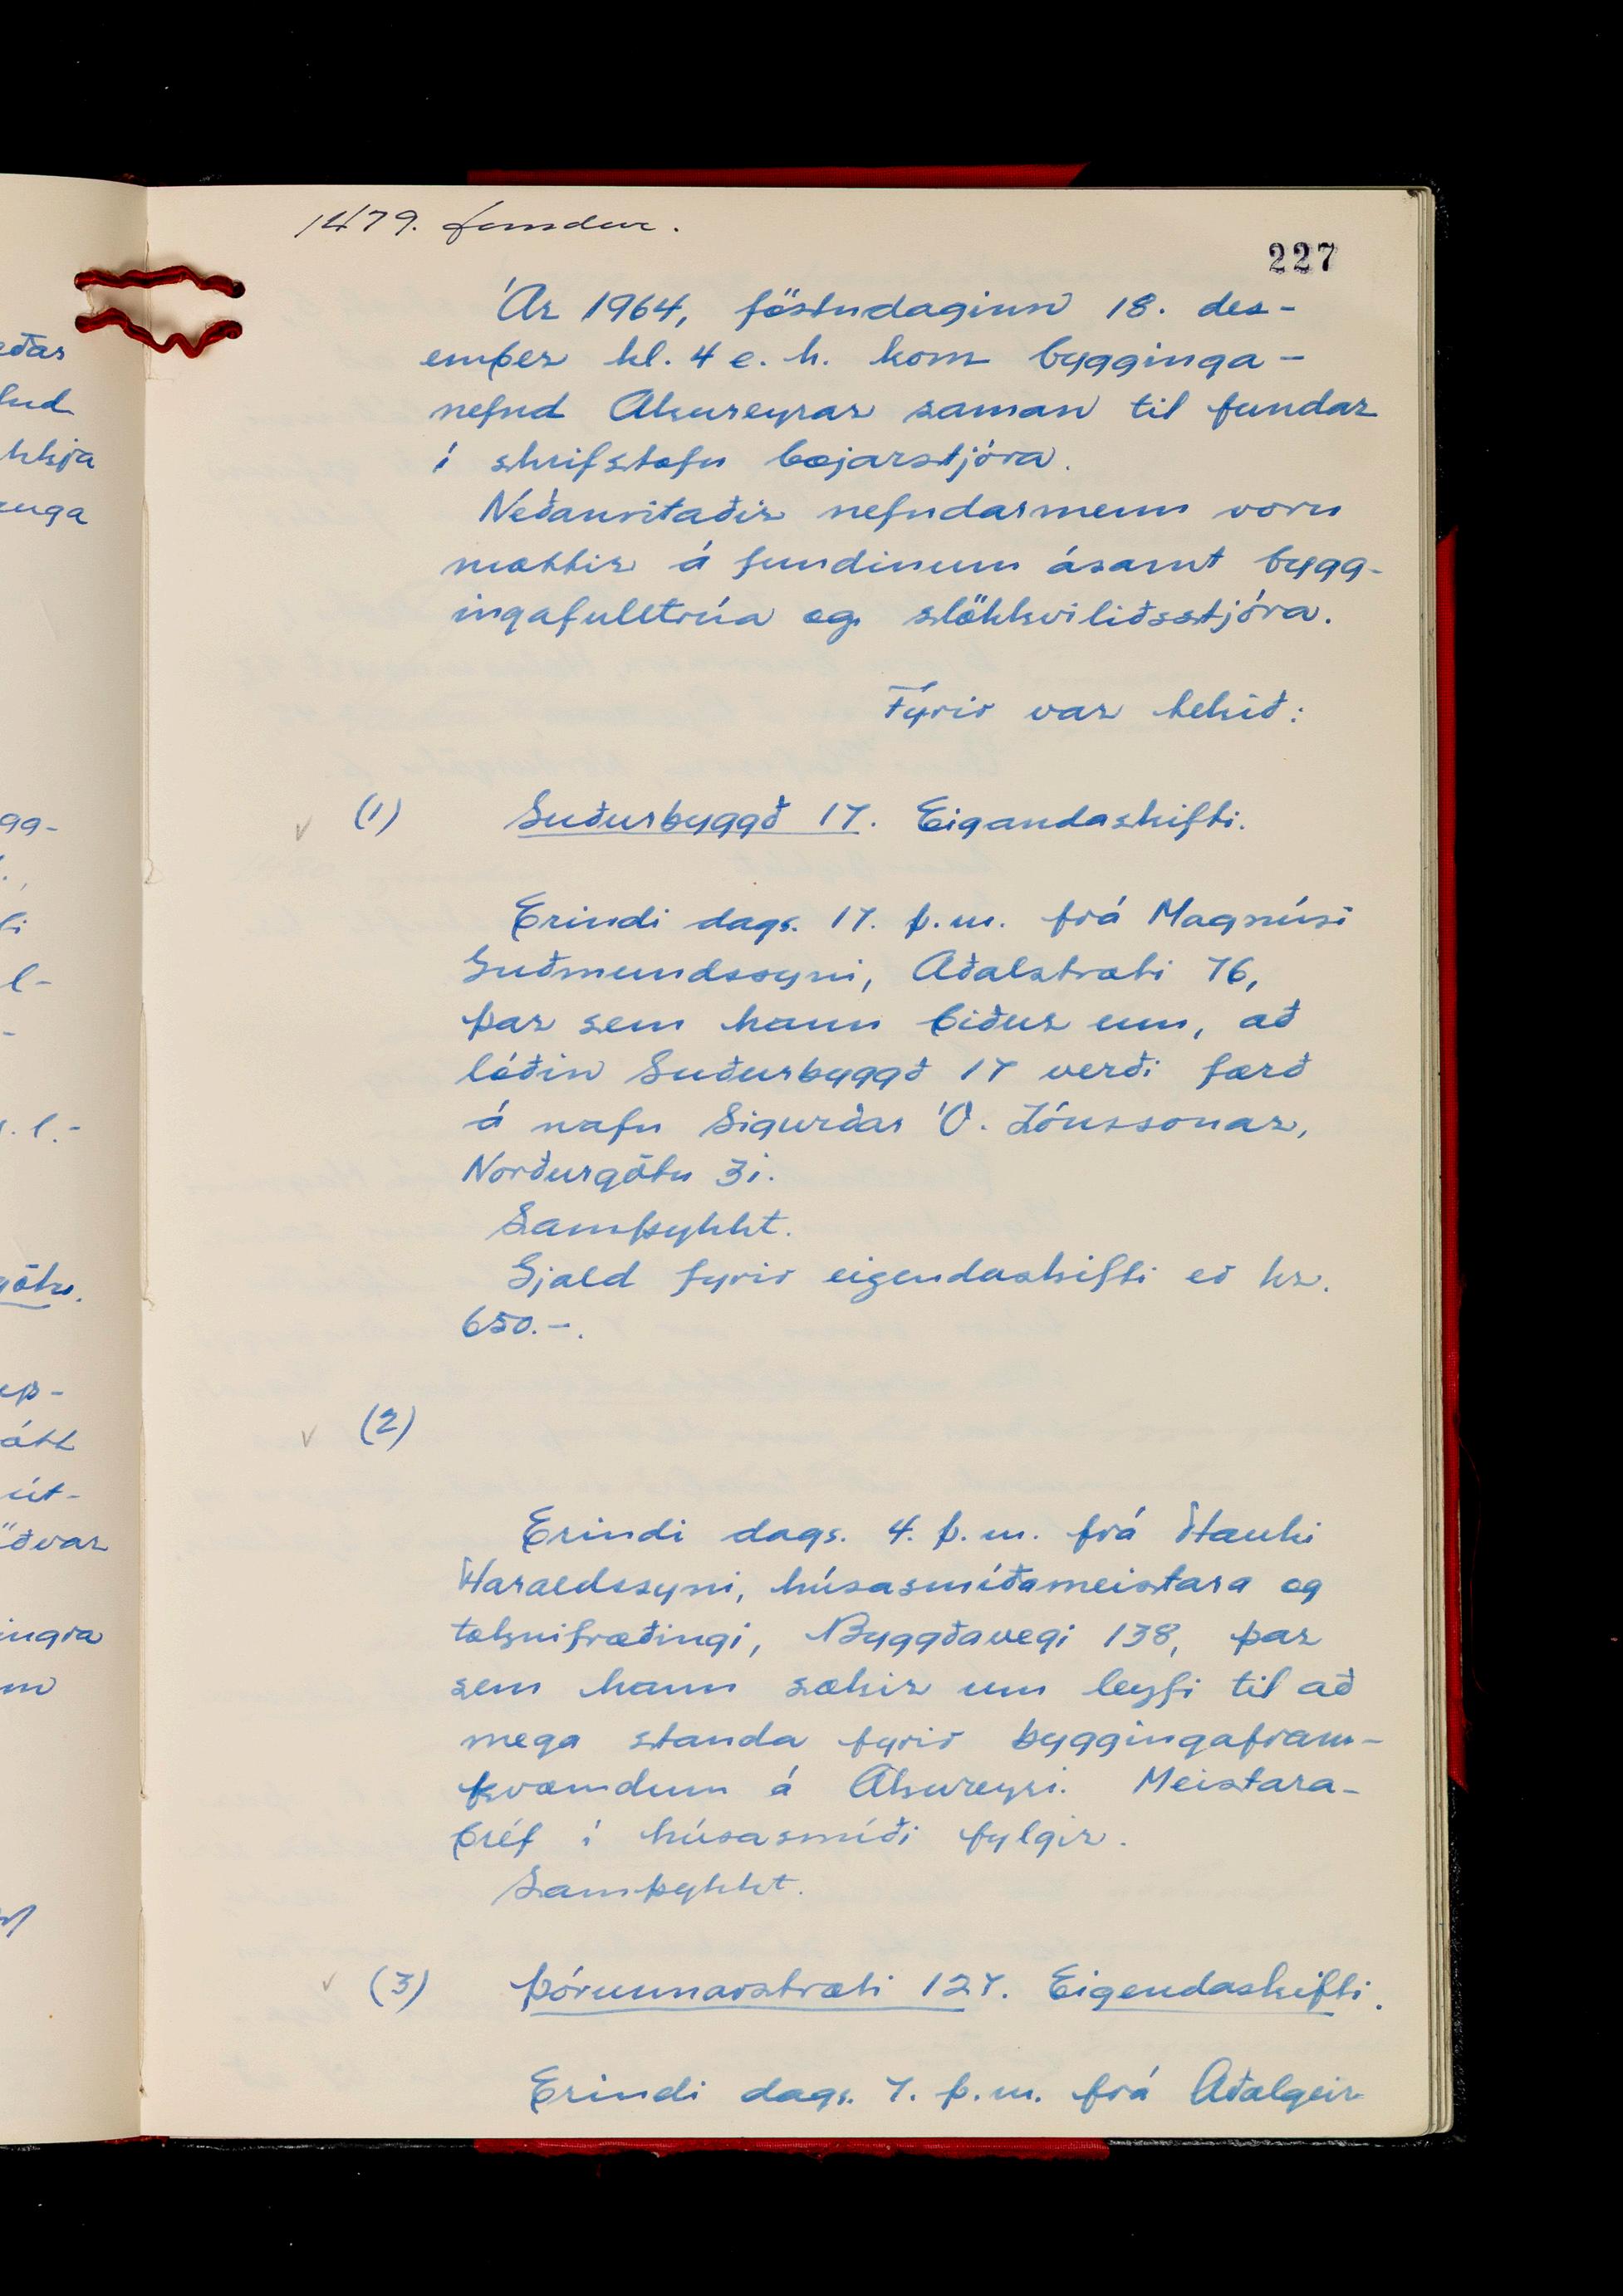 1479. fundur.
227
Ár 1964, föstudaginn 18. des-
ember kl. 4 e. h. kom bygginga-
nefnd Akureyrar saman til fundar
í skrifstofu bæjarstjóra.
Neðanritaðir nefndarmenn voru
mættir á fundinum ásamt bygg-
ingafulltrúa og slökkviliðsstjóra.
Fyrir var tekið:
(1) Suðurbyggð 17. Eigandaskifti.
Erindi dags. 17. þ.m. frá Magnúsi
Guðmundssyni, Aðalstræti 76,
þar sem hann biður um, að
lóðin Suðurbyggð 17 verði færð
á nafn Sigurðar Ó. Jónssonar,
Norðurgötu 31.
Samþykkt.
Gjald fyrir eigendaskifti er kr.
650.-.
(2)
Erindi dags. 4. þ.m. frá Hauki
Haraldssyni, húsasmíðameistara og
tæknifræðingi, Byggðavegi 138, þar
sem hann sækir um leyfi til að
mega standa fyrir byggingafram-
kvæmdum á Akureyri. Meistara-
bréf í húsasmíði fylgir.
Samþykkt.
(3) Þórunnarstræti 127. Eigendaskifti.
Erindi dags. 7. þ.m. frá Aðalgeir
eðar
kkja
gg-
l-
götu.
átt
út-
öðvar
ingra